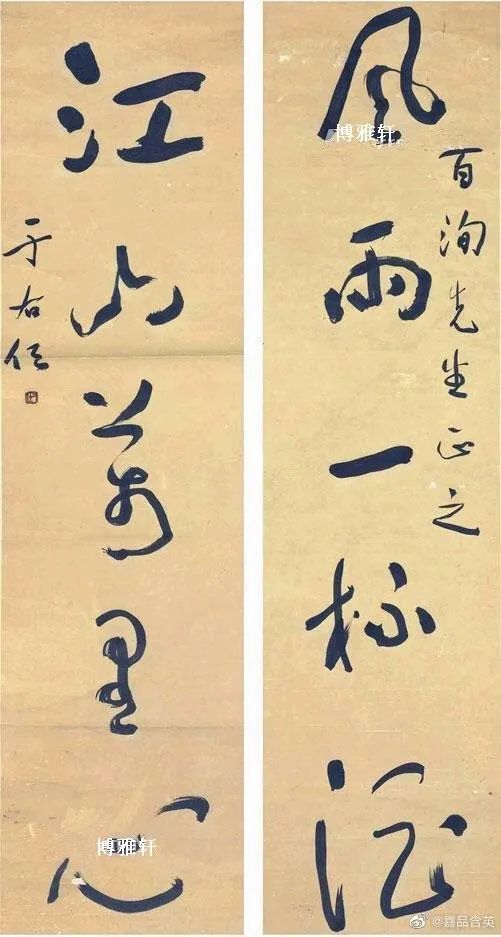 风雨一杯酒
百洵先生正之
江山万里心
于右任
博雅轩
博雅轩
@嘉品含英